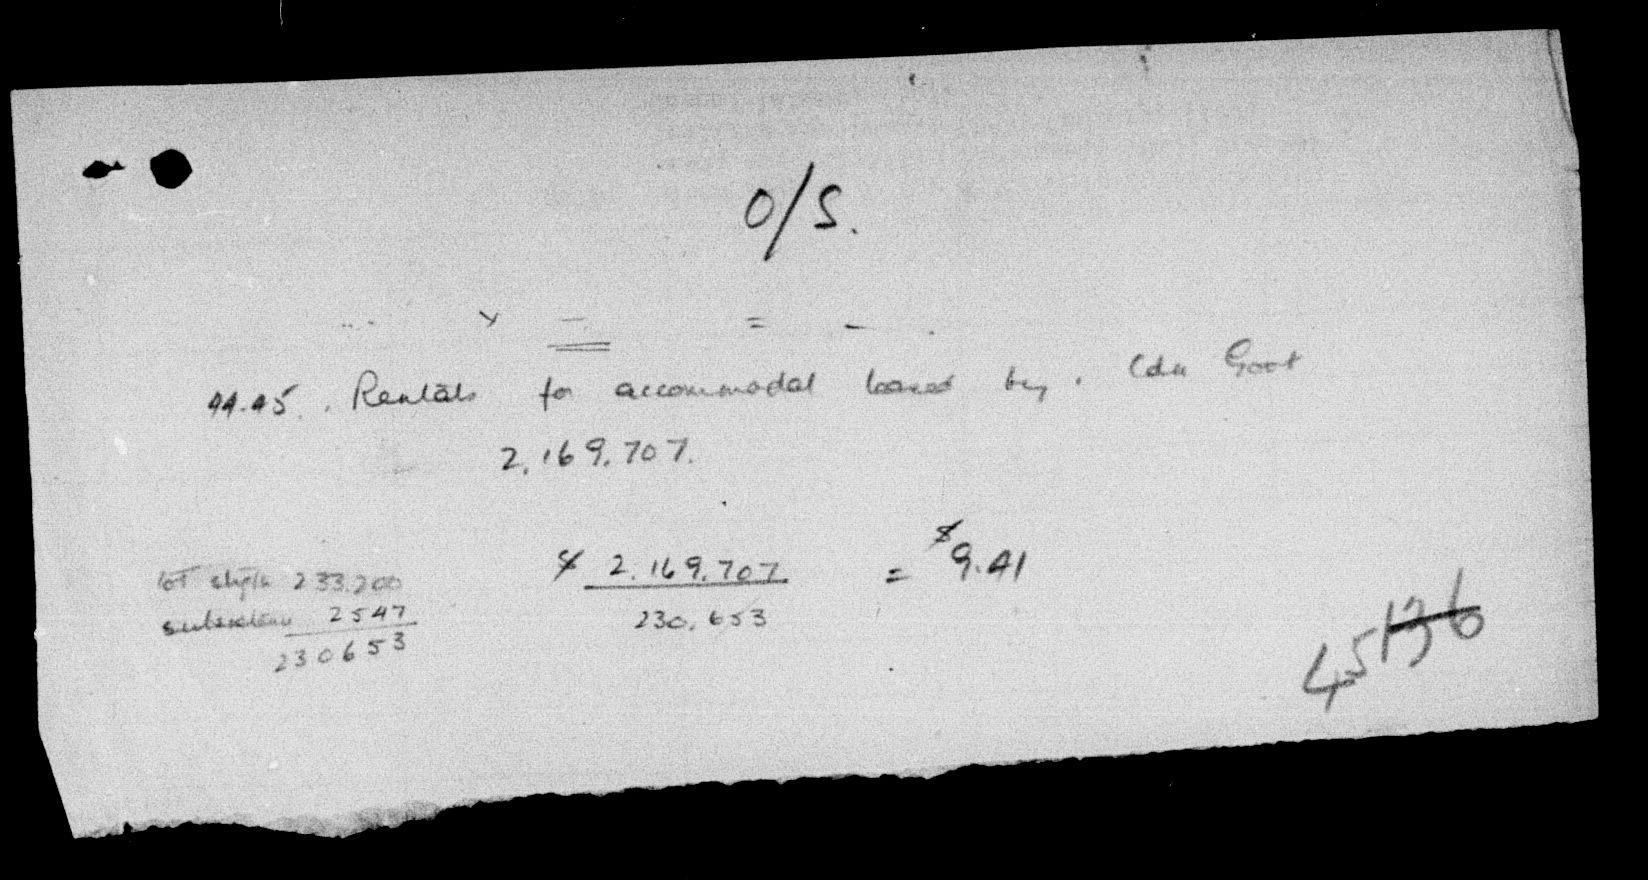 O/S.
44.45. Rentals for accommodat leased by. Cdn Govt
2,169,707.
$ 2,169,707 = $9.41
230,653
tot 233.200
2547
230653
45136